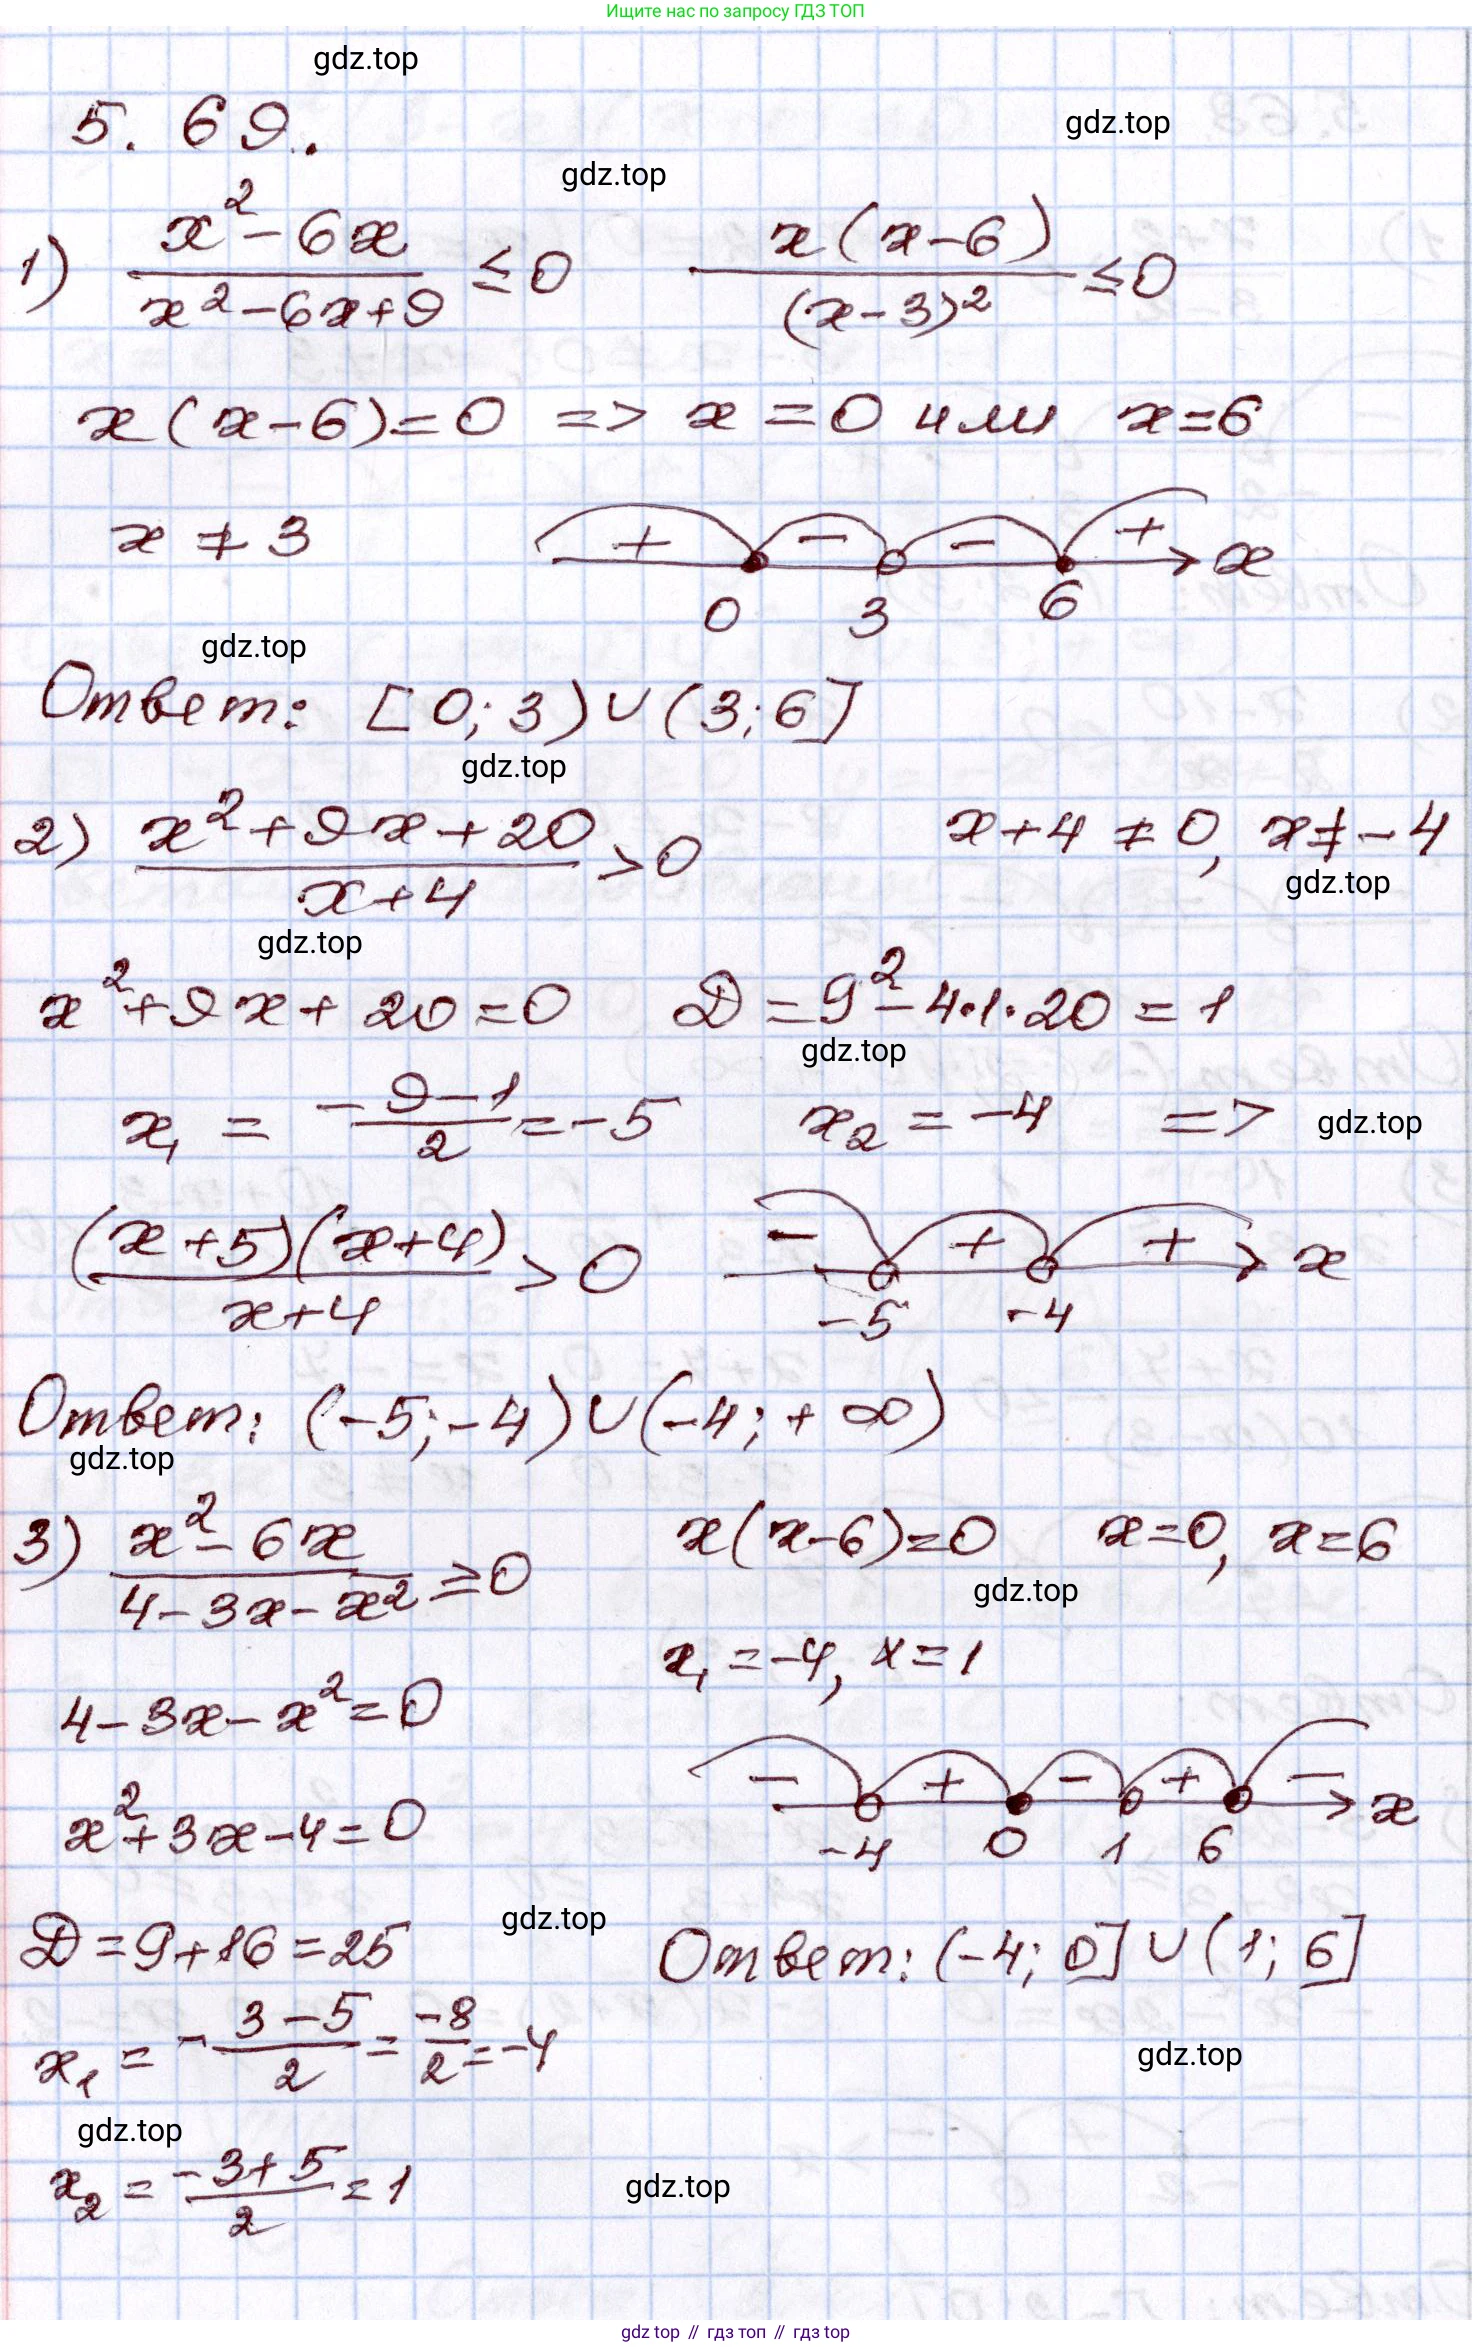 Ищите нас по запросу ГДЗ ТОП
gdz.top
5.69.
gdz.top
gdz.top
1) (x² - 6x)/(x² - 6x + 9) ≤ 0    x(x - 6)/(x - 3)² ≤ 0
x(x - 6) = 0 => x = 0 или x = 6
x ≠ 3    + - - + x
0 3 6
gdz.top
Ответ: [0; 3) ∪ (3; 6]
gdz.top
2) (x² + 9x + 20)/(x + 4) > 0    x + 4 ≠ 0, x ≠ -4
gdz.top
gdz.top
x² + 9x + 20 = 0    D = 9² - 4·1·20 = 1
gdz.top
x₁ = (-9 - 1)/2 = -5    x₂ = -4 =>
gdz.top
(x + 5)(x + 4)/(x + 4) > 0    - + + x
-5 -4
Ответ: (-5; -4) ∪ (-4; +∞)
gdz.top
3) (x² - 6x)/(4 - 3x - x²) ≥ 0    x(x - 6) = 0    x = 0, x = 6
gdz.top
x₁ = -4, x = 1
4 - 3x - x² = 0
- + - + - x
-4 0 1 6
x² + 3x - 4 = 0
gdz.top
D = 9 + 16 = 25    Ответ: (-4; 0] ∪ (1; 6]
x₁ = (-3 - 5)/2 = -8/2 = -4
gdz.top
gdz.top
x₂ = (-3 + 5)/2 = 1
gdz.top
gdz.top // гдз топ // гдз top